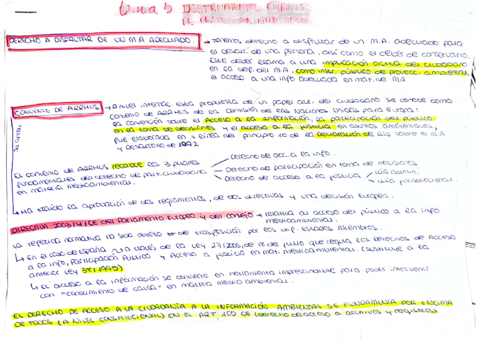 DERECHO A DISFRUTAR DE UN M.A ADECUADO → Tenemos derecho a disfrutar de un M.A. adecuado para
el desar. de una persona, así como el deber de conservarlo.
Este deber llama a una implicación activa del ciudadano
en la def del M.A. como inst. público de protecc. ambiental
el acceso a una info adecuada en mat. de M.A
CONVENIO DE AARHUS → A nivel internac. esta propuesta de un papel act. del ciudadano se conoce como
convenio de Aarhus de la comisión de las Naciones Unidas para Europa:
la convención sobre el acceso a la información, la participación del público
en la toma de decisiones y el acceso a la justicia en asuntos ambientales,
principio 10 de la declaración de Río sobre el M.A
y desarrollo de 1992
El convenio de Aarhus reconoce los 3 pilares
fundamentales del derecho de part. ciudadana
en materia medioambiental.
→ Derecho de acc. a la info.
→ Derecho de participación en toma de decisiones
→ Derecho de acceso a la justicia
vía admin.
vía jurisdiccional.
→ Ha exigido la aprobación de dos reglamentos, de dos directivas y una decisión europea.
DIRECTIVA 2003/4/CE del Parlamento Europeo y del Consejo → relativa al acceso del público a la info
medioambiental.
La referida normativa ha sido objeto de transposición por los dif. Estados miembros.
→ En el caso de España, a través de la Ley 27/2006, de 18 de julio que regula los derechos de Acceso
a la info, participación pública y acceso a justicia en mat. medioambiental. Sustituye a la
anterior Ley 38/1995)
↳ El acceso a la información se convierte en herramienta imprescindible para poder intervenir
con "conocimiento de causa" en materia medio ambiental.
EL DERECHO DE ACCESO A LA CIUDADANÍA A LA INFORMACIÓN AMBIENTAL SE FUNDAMENTA POR ENCIMA
DE TODO (A NIVEL CONSTITUCIONAL) EN EL ART. 105 de (derecho de acceso a archivos y registros)